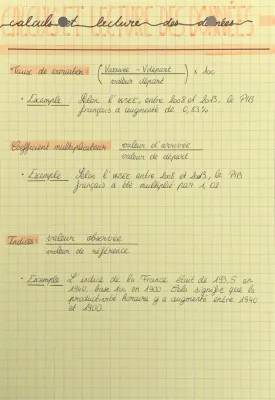 CALCULS ET LECTURE DES DONNÉES
calculs et lecture des données
Taux de variation (Varrivée - Vdépart / valeur départ) x 100
• Exemple Selon l'INSEE, entre 2008 et 2013, le PIB
français a augmenté de 0,83%
Coefficient multiplicateur valeur d'arrivée
valeur de départ
• Exemple Selon l'INSEE entre 2008 et 2013, le PIB
français a été multiplié par 1,02.
Indices valeur observée
valeur de référence
• Exemple L'indice de la France était de 193,5 en
1940, base 100 en 1900. Cela signifie que la
productivité horaire y a augmenté entre 1940
et 1900.